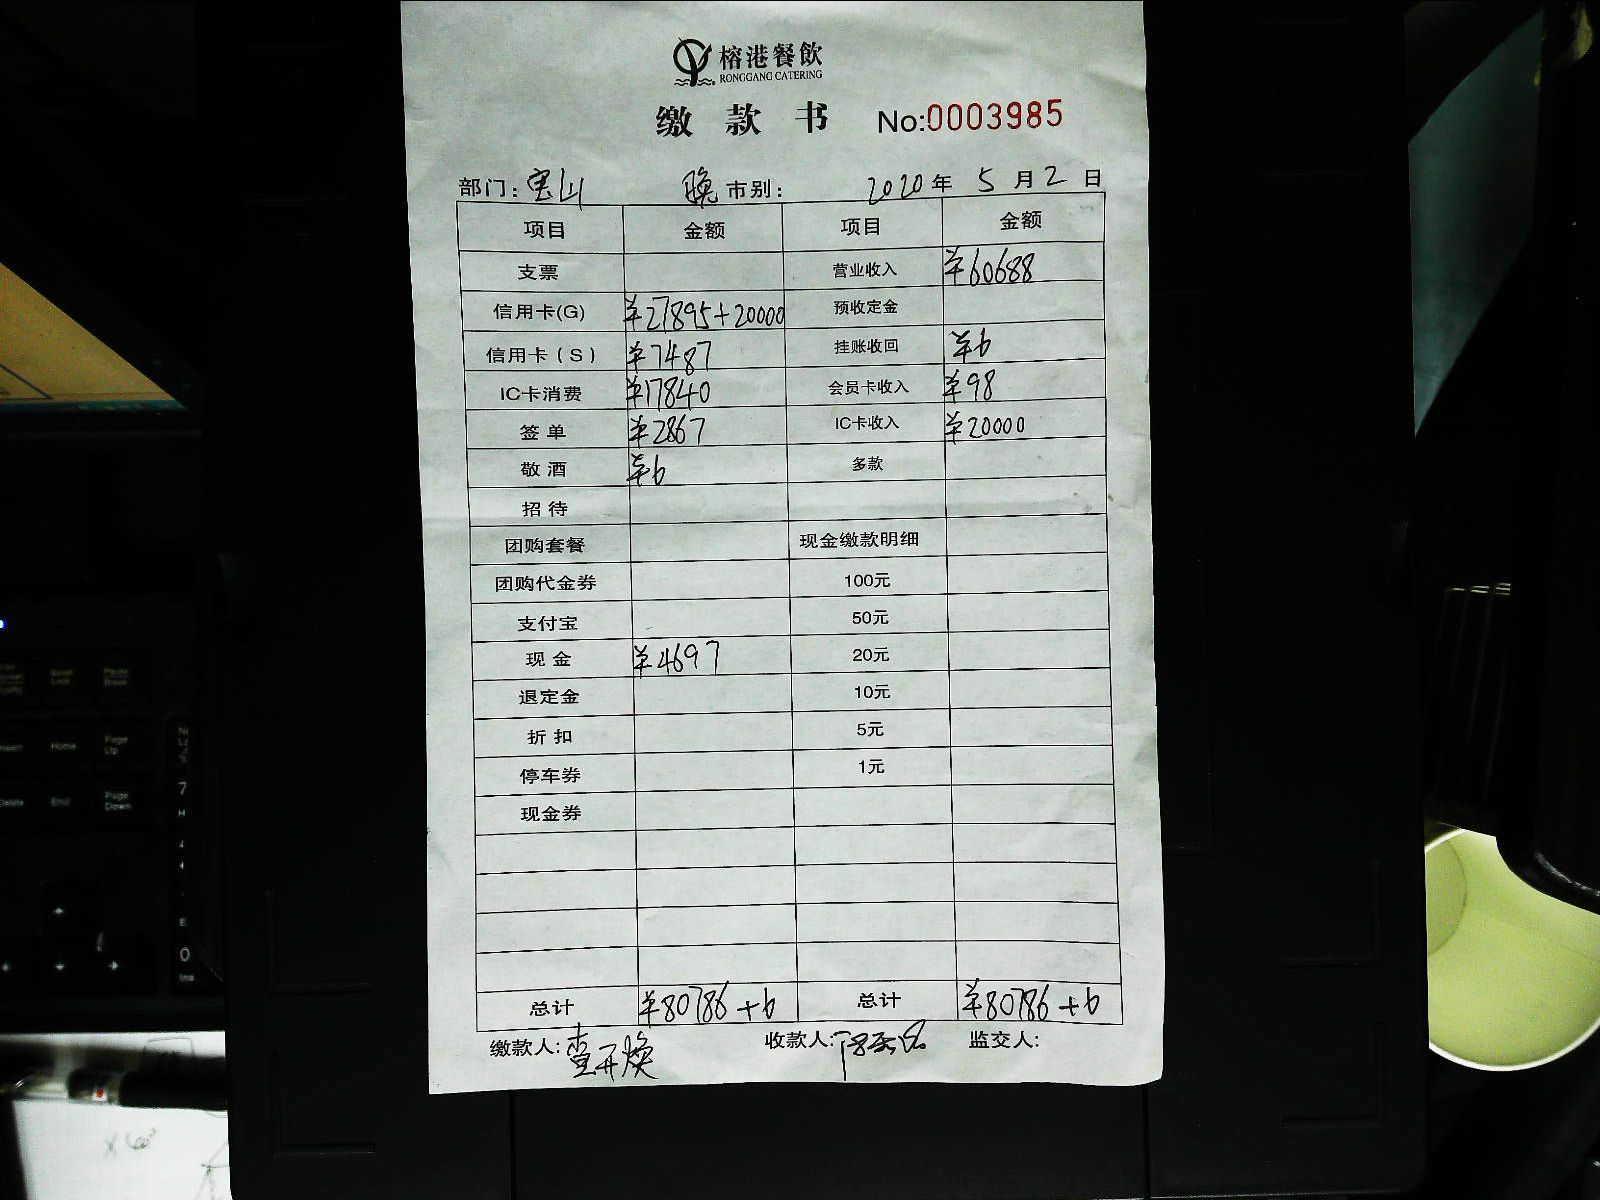 榕港餐飲
RONGGANG CATERING
缴款书 No:0003985
部门: 宝山 晚市别: 2020年5月2日
项目 金额 项目 金额
支票 营业收入 ¥60688
信用卡(G) ¥27895+20000 预收定金
信用卡(S) ¥7487 挂账收回 ¥6
IC卡消费 ¥17840 会员卡收入 ¥98
签单 ¥2867 IC卡收入 ¥20000
敬酒 ¥6 多款
招待
团购套餐 现金缴款明细
团购代金券 100元
支付宝 50元
现金 ¥4697 20元
退定金 10元
折扣 5元
停车券 1元
现金券
总计 ¥80786+6 总计 ¥80786+6
缴款人: 查开焕 收款人: 监交人: